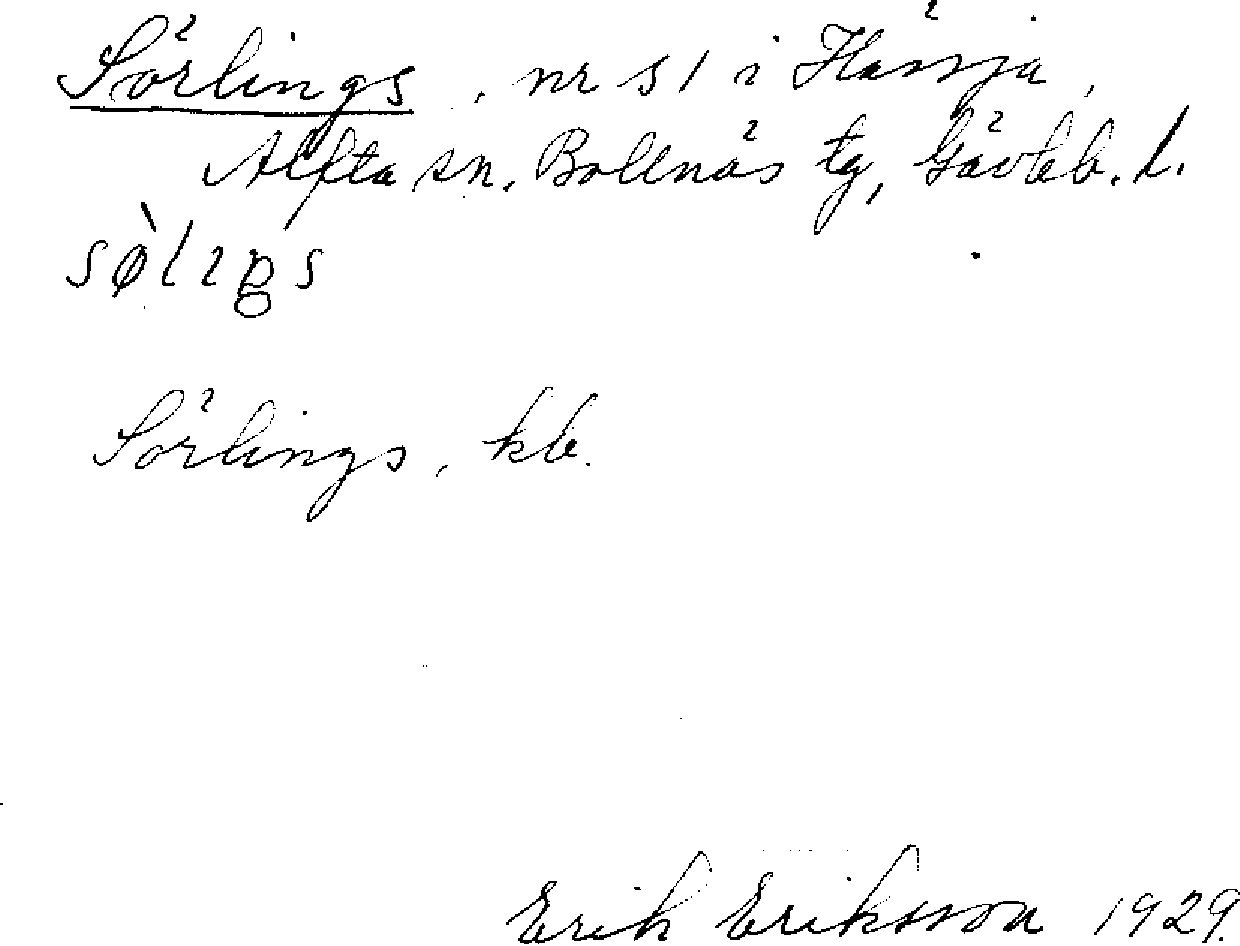 Sörlings, nr 51 i Hässja,
Alfta sn. Bollnäs tg, Gävleb. l.
sø̀lıŋs
Sörlings, kb.
Erik Eriksson 1929.